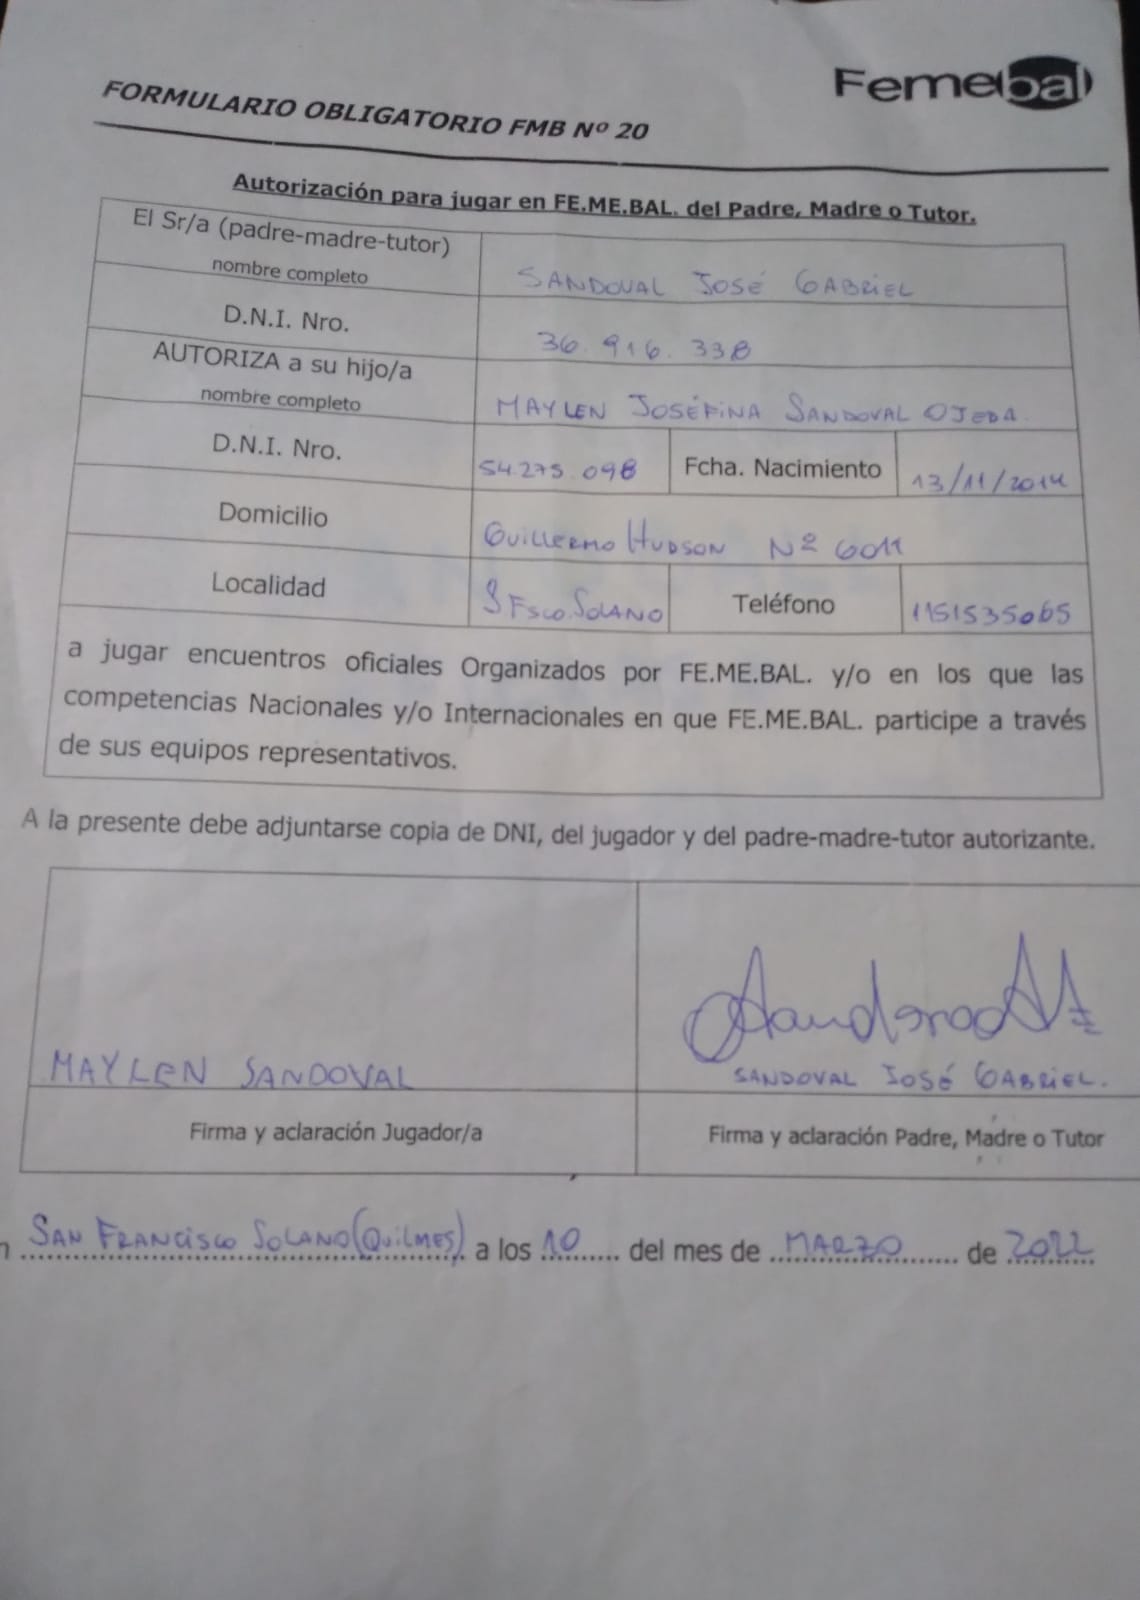 Femebal
FORMULARIO OBLIGATORIO FMB Nº 20
Autorización para jugar en FE.ME.BAL. del Padre, Madre o Tutor.
El Sr/a (padre-madre-tutor)
nombre completo
SANDOVAL JOSÉ GABRIEL
D.N.I. Nro.
36.916.338
AUTORIZA a su hijo/a
nombre completo
MAYLEN JOSÉFINA SANDOVAL OJEDA.
D.N.I. Nro.
54.275.098
Fcha. Nacimiento
13/11/2014
Domicilio
GUILLERMO HUDSON Nº 6011
Localidad
S FSCO. SOLANO
Teléfono
1151535065
a jugar encuentros oficiales Organizados por FE.ME.BAL. y/o en los que las
competencias Nacionales y/o Internacionales en que FE.ME.BAL. participe a través
de sus equipos representativos.
A la presente debe adjuntarse copia de DNI, del jugador y del padre-madre-tutor autorizante.
MAYLEN SANDOVAL
SANDOVAL JOSÉ GABRIEL.
Firma y aclaración Jugador/a
Firma y aclaración Padre, Madre o Tutor
n SAN FRANCISCO SOLANO (QUILMES) a los 10 del mes de MARZO de 2022